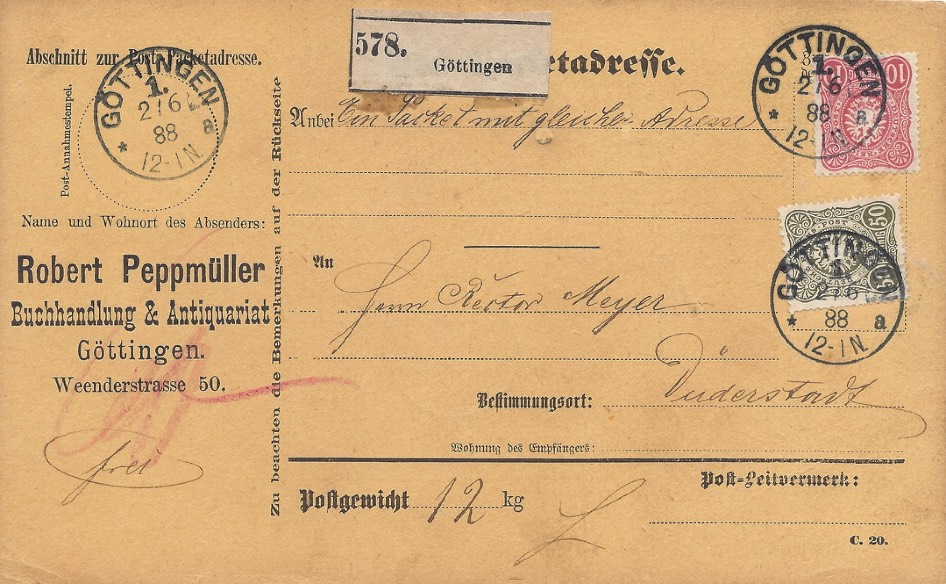 Abschnitt zur Post-Packetadresse.
GÖTTINGEN
1.
2/6
88
* a
12-1N.
Post-Annahmestempel.
Name und Wohnort des Absenders:
Robert Peppmüller
Buchhandlung & Antiquariat
Göttingen.
Weenderstrasse 50.
frei
Zu beachten die Bemerkungen auf der Rückseite
578.
Göttingen
etadresse.
Anbei Ein Packet mit gleicher Adresse
An
Herrn Rector Meyer
Duderstadt
Bestimmungsort:
Wohnung des Empfängers:
Postgewicht 12 kg
Post-Leitvermerk:
C. 20.
GÖTTINGEN
1.
2/6
88
* a
12-1N.
10
10
50
POST
GÖTTINGEN
1.
2/6
88
* a
12-1N.